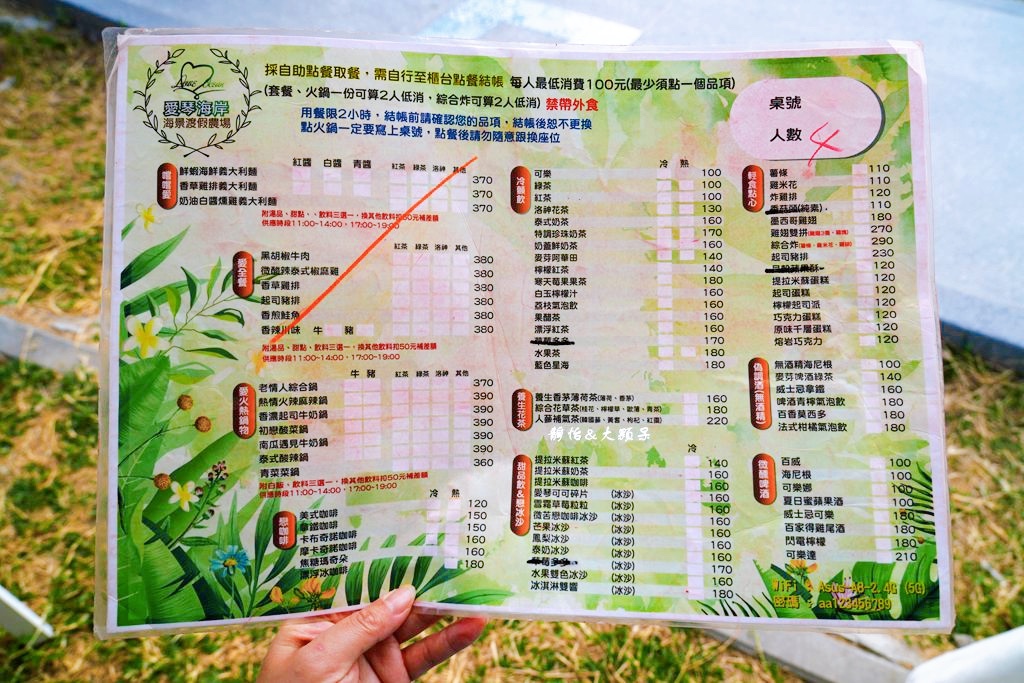 愛琴海岸
海景渡假農場
採自助點餐取餐，需自行至櫃台點餐結帳 每人最低消費100元(最少須點一個品項)
(套餐、火鍋一份可算2人低消，綜合炸可算2人低消) 禁帶外食
用餐限2小時，結帳前請確認您的品項，結帳後恕不更換
點火鍋一定要寫上桌號，點餐後請勿隨意跟換座位
桌號
人數 4
紅醬 白醬 青醬 紅茶 綠茶 洛神 其他
鮮蝦海鮮義大利麵 370
香草雞排義大利麵 370
奶油白醬燻雞義大利麵 370
附湯品、甜點、、飲料三選一，換其他飲料扣50元補差額
供應時段11:00-14:00，17:00-19:00
愛全餐
紅茶 綠茶 洛神 其他
黑胡椒牛肉 380
微酸辣泰式椒麻雞 380
香草雞排 380
起司豬排 380
香煎鮭魚 380
香辣川味 牛 豬 380
附湯品、甜點、飲料三選一，換其他飲料扣50元補差額
供應時段11:00-14:00，17:00-19:00
愛火熱鍋物
牛 豬 紅茶 綠茶 洛神 其他
老情人綜合鍋 370
熱情火辣麻辣鍋 390
香濃起司牛奶鍋 390
初戀酸菜鍋 390
南瓜遇見牛奶鍋 390
泰式酸辣鍋 390
青菜菜鍋 360
附白飯、飲料三選一，換其他飲料扣50元補差額
供應時段11:00-14:00，17:00-19:00
戀咖啡
冷 熱
美式咖啡 120
拿鐵咖啡 150
卡布奇諾咖啡 150
摩卡奇諾咖啡 160
焦糖瑪奇朵 160
漂浮冰咖啡 180
冷飲
冷 熱
可樂 100
綠茶 100
紅茶 100
洛神花茶 130
泰式奶茶 160
特調珍珠奶茶 170
奶蓋鮮奶茶 160
麥芽阿華田 140
檸檬紅茶 140
寒天莓果果茶 180
白玉檸檬汁 160
荔枝氣泡飲 160
果醋茶 160
漂浮紅茶 160
水果茶 180
藍色星海 180
養生花茶
養生香茅薄荷茶(薄荷、香茅) 160
綜合花草茶(桂花、檸檬草、歐薄、青茶) 180
人蔘補氣茶 220
甜品飲&戀冰沙
冷
提拉米蘇紅茶 140
提拉米蘇奶茶 160
提拉米蘇咖啡 160
愛琴可可碎片 (冰沙) 160
雪霜草莓粒粒 (冰沙) 160
微苦戀咖啡冰沙 (冰沙) 160
芒果冰沙 (冰沙) 160
鳳梨冰沙 (冰沙) 160
泰奶冰沙 (冰沙) 160
(冰沙) 170
水果雙色冰沙 (冰沙) 160
冰淇淋雙響 (冰沙) 180
輕食點心
薯條 110
雞米花 110
炸雞排 120
香菇頭(純素) 110
墨西哥雞翅 180
雞翅雙拼 270
綜合炸(薯條、雞米花、雞排) 290
起司豬排 230
120
提拉米蘇蛋糕 120
起司蛋糕 120
檸檬起司派 120
巧克力蛋糕 120
原味千層蛋糕 120
熔岩巧克力 120
偽調酒(無酒精)
無酒精海尼根 100
麥芽啤酒綠茶 140
威士忌拿鐵 160
啤酒青檸氣泡飲 180
百香莫西多 180
法式柑橘氣泡飲 180
微醺啤酒
百威 100
海尼根 100
可樂娜 100
夏日蜜蘋果酒 180
威士忌可樂 180
百家得雞尾酒 180
閃電檸檬 180
可樂達 210
WiFi : Asus-AB-2.4G (5G)
密碼 : aa123456789